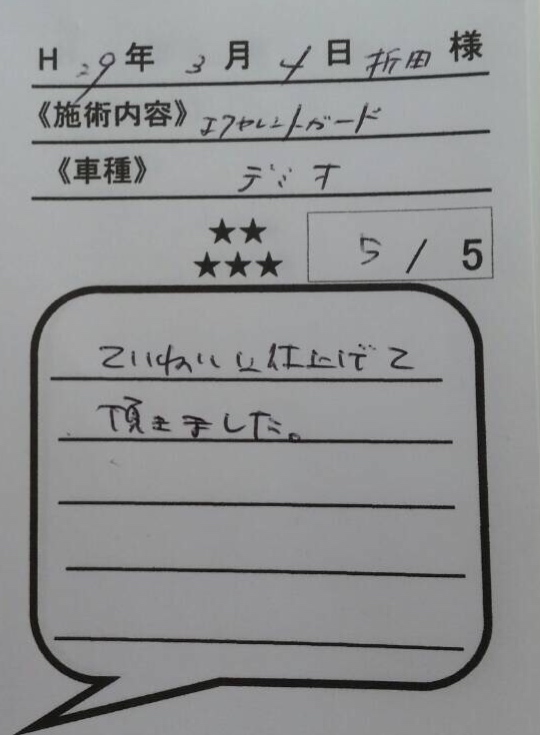 H 29年 3月 4日 折田 様
《施術内容》エクセレントガード
《車種》 デミオ
★★
★★★ 5 / 5
ていねいに仕上げて
頂きました。